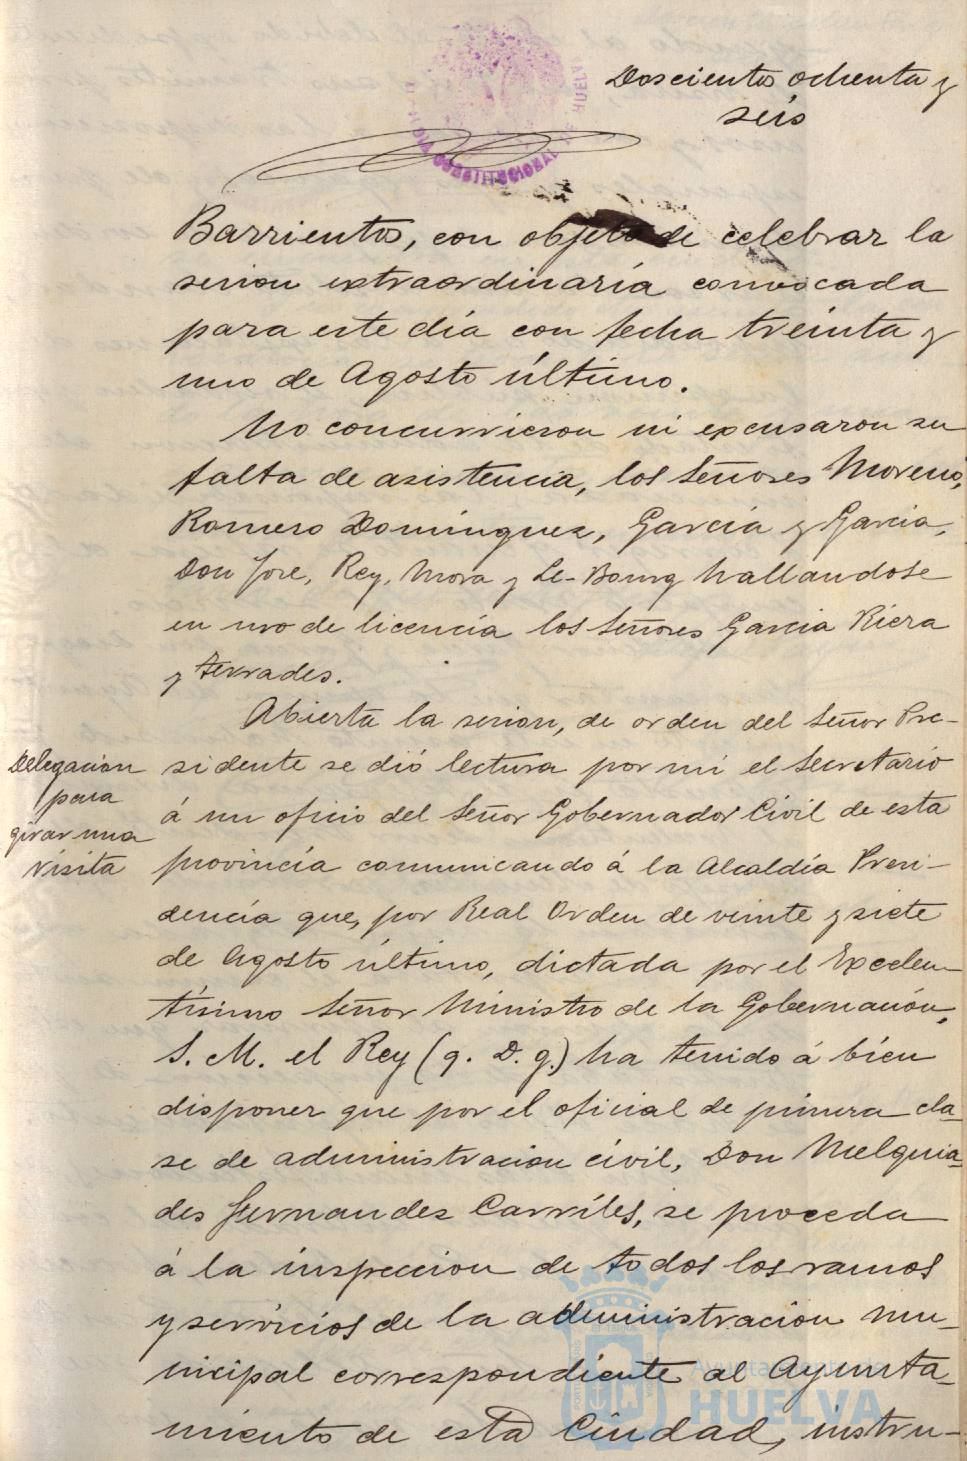 Doscientos ochenta y
seis
CONSTITUCIONAL
HUELVA
Barrientos, con objeto de celebrar la
sesion extraordinaria convocada
para este día con fecha treinta y
uno de Agosto último.
No concurrieron ni excusaron su
falta de asistencia, los Señores Moreno,
Romero Domínguez, García y Garcia,
Don Jose, Rey, Mora y Le-Bourg hallandose
en uso de licencia los Señores Garcia Riera
y Terrades.
Abierta la sesion, de orden del Señor Pre-
sidente se dió lectura por mi el Secretario
á un oficio del Señor Gobernador Civil de esta
provincia comunicando á la Alcaldía Presi-
dencia que, por Real Orden de veinte y siete
de Agosto último, dictada por el Excelen-
tísimo Señor Ministro de la Gobernación,
S. M. el Rey (q. D. g.) ha tenido á bien
disponer que por el oficial de primera cla-
se de administracion civil, Don Melquia-
des Fernandez Carriles, se proceda
á la inspeccion de todos los ramos
y servicios de la administracion mu-
nicipal correspondiente al Ayunta-
miento de esta Ciudad, instru-
Delegacion
para
girar una
visita
Ayuntamiento de
HUELVA